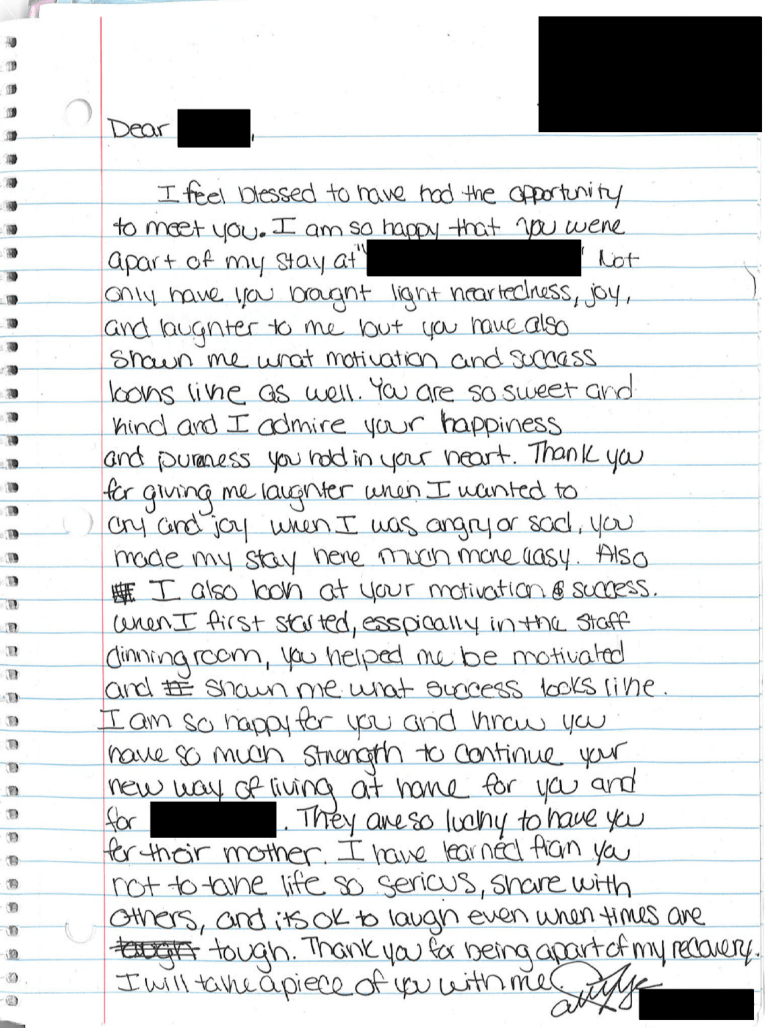 Dear ,
I feel blessed to have had the opportunity
to meet you. I am so happy that you were
apart of my stay at " " Not
only have you brought light heartedness, joy,
and laughter to me but you have also
shown me what motivation and success
looks like as well. You are so sweet and
kind and I admire your happiness
and pureness you hold in your heart. Thank you
for giving me laughter when I wanted to
cry and joy when I was angry or sad, you
made my stay here much more easy. Also
I also look at your motivation & success.
when I first started, esspically in the staff
dinning room, you helped me be motivated
and shown me what success looks like.
I am so happy for you and know you
have so much strength to continue your
new way of living at home for you and
for . They are so lucky to have you
for their mother. I have learned from you
not to take life so serious, share with
others, and its ok to laugh even when times are
tough. Thank you for being apart of my recovery.
I will take a piece of you with me.